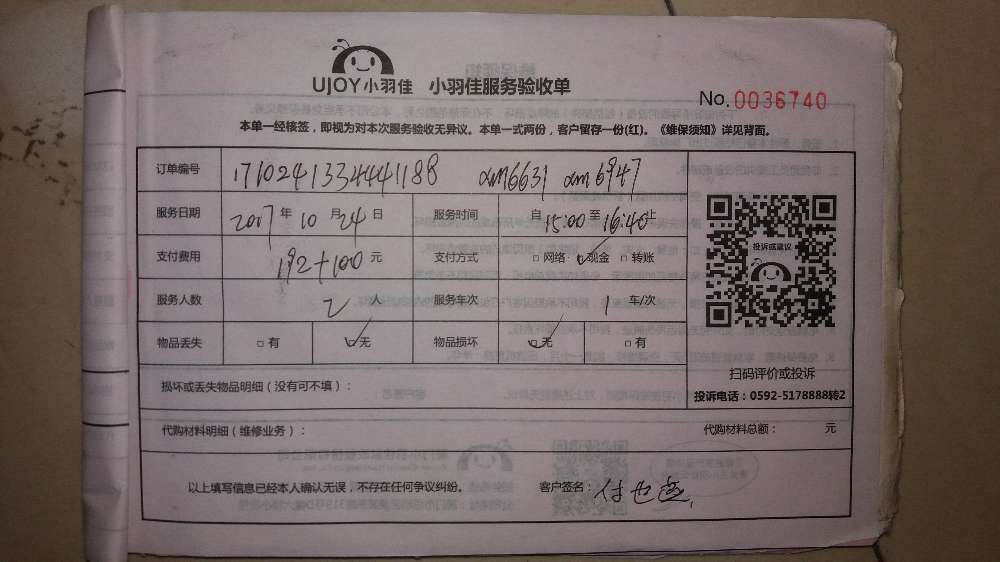 UJOY小羽佳 小羽佳服务验收单
No.0036740
本单一经核签，即视为对本次服务验收无异议。本单一式两份，客户留存一份(红)。《维保须知》详见背面。
订单编号 171024133444188 xm6631 xm6947
服务日期 2017年10月24日 服务时间 自15:00至16:40止
支付费用 192+100元 支付方式 □网络 ☑现金 □转账
服务人数 2人 服务车次 1车/次
物品丢失 □有 ☑无 物品损坏 ☑无 □有
投诉或建议
扫码评价或投诉
投诉电话：0592-5178888转2
损坏或丢失物品明细（没有可不填）：
代购材料明细（维修业务）： 代购材料总额： 元
以上填写信息已经本人确认无误，不存在任何争议纠纷。 客户签名：